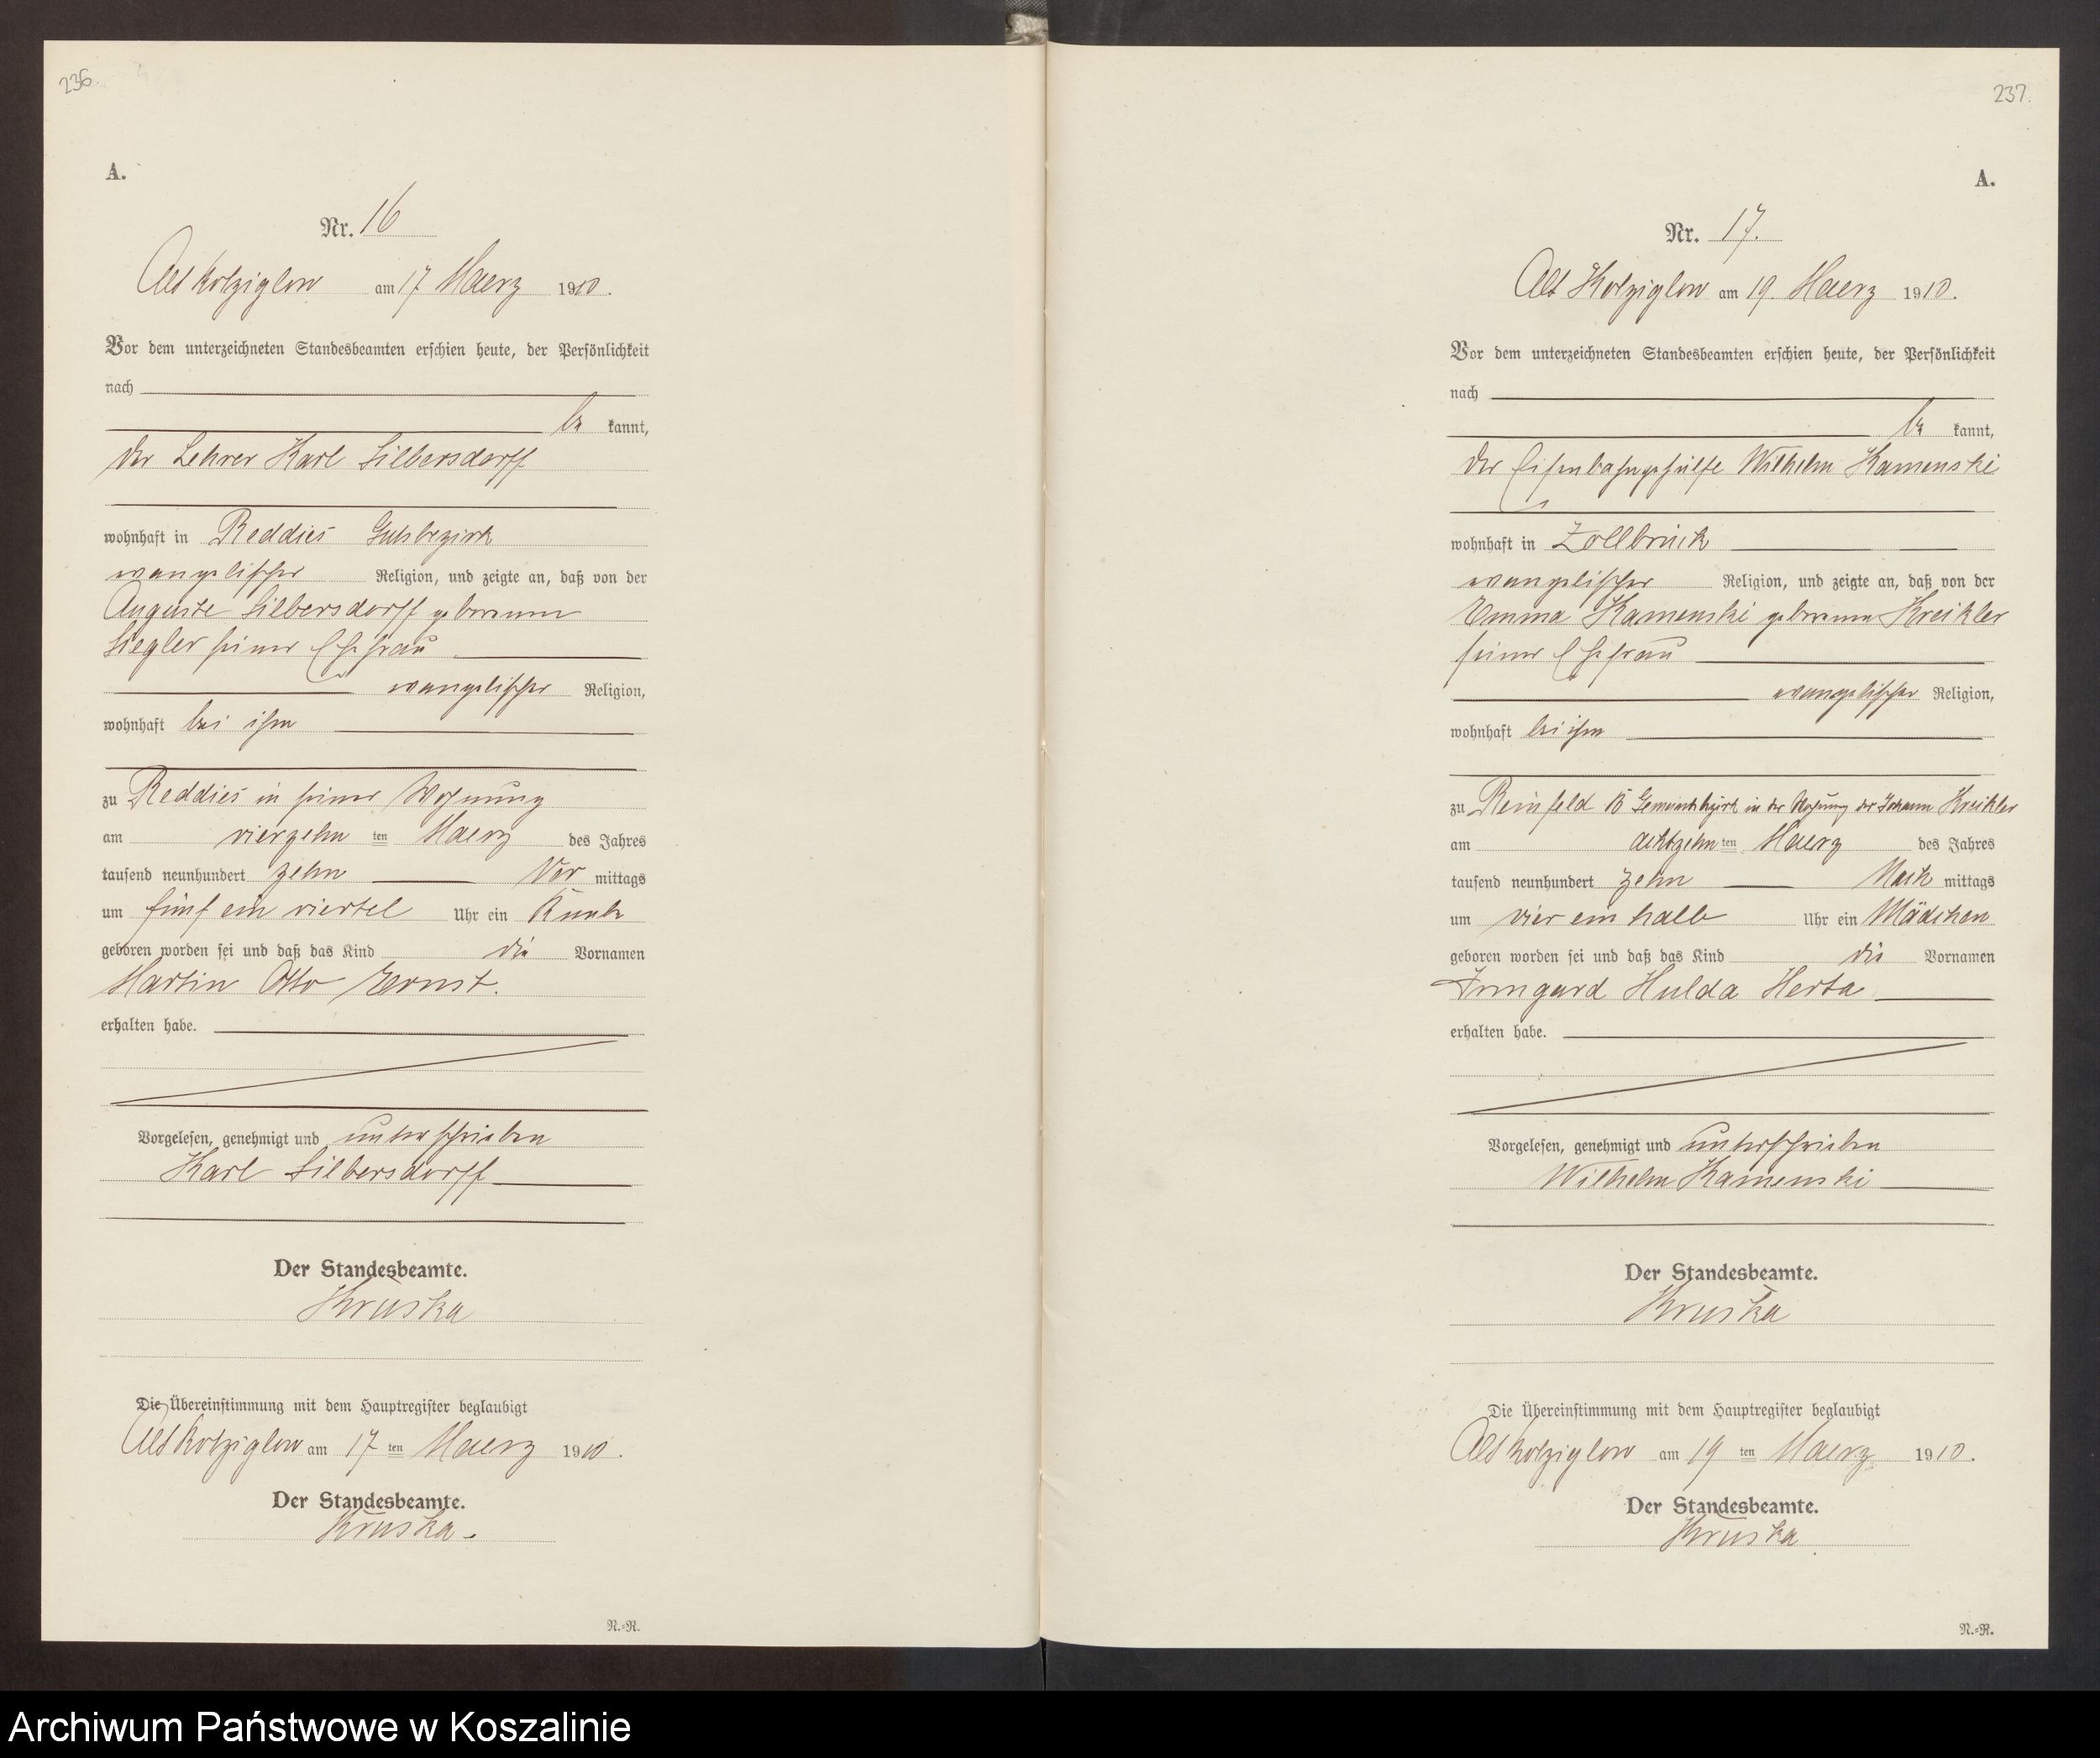 236.
A.
Nr. 16
Alt Kolziglow am 17 Maerz 1910.
Vor dem unterzeichneten Standesbeamten erschien heute, der Persönlichkeit
nach
be kannt,
der Lehrer Karl Silbersdorff
wohnhaft in Reddies Gutsbezirk
evangelischer Religion, und zeigte an, daß von der
Auguste Silbersdorff geborenen
Siegler seiner Ehefrau
evangelischer Religion,
wohnhaft bei ihm
zu Reddies in seiner Wohnung
am vierzehn ten Maerz des Jahres
tausend neunhundert zehn Vor mittags
um fünf ein viertel Uhr ein Knabe
geboren worden sei und daß das Kind die Vornamen
Martin Otto Ernst.
erhalten habe.
Vorgelesen, genehmigt und unterschrieben
Karl Silbersdorff
Der Standesbeamte.
Kruska
Die Übereinstimmung mit dem Hauptregister beglaubigt
Alt Kolziglow am 17 ten Maerz 1910.
Der Standesbeamte.
Kruska.
N.=R.
237.
A.
Nr. 17.
Alt Kolziglow am 19. Maerz 1910.
Vor dem unterzeichneten Standesbeamten erschien heute, der Persönlichkeit
nach
be kannt,
der Eisenbahngehülfe Wilhelm Kamenski
wohnhaft in Zollbrück
evangelischer Religion, und zeigte an, daß von der
Emma Kamenski geborenen Kreikler
seiner Ehefrau
evangelischer Religion,
wohnhaft bei ihm
zu Reinfeld Gemeindebezirk in der Wohnung der Johann Kreikler
am achtzehn ten Maerz des Jahres
tausend neunhundert zehn Nach mittags
um vier ein halb Uhr ein Mädchen
geboren worden sei und daß das Kind die Vornamen
Irmgard Hulda Herta
erhalten habe.
Vorgelesen, genehmigt und unterschrieben
Wilhelm Kamenski
Der Standesbeamte.
Kruska
Die Übereinstimmung mit dem Hauptregister beglaubigt
Alt Kolziglow am 19 ten Maerz 1910.
Der Standesbeamte.
Kruska
N.=R.
Archiwum Państwowe w Koszalinie